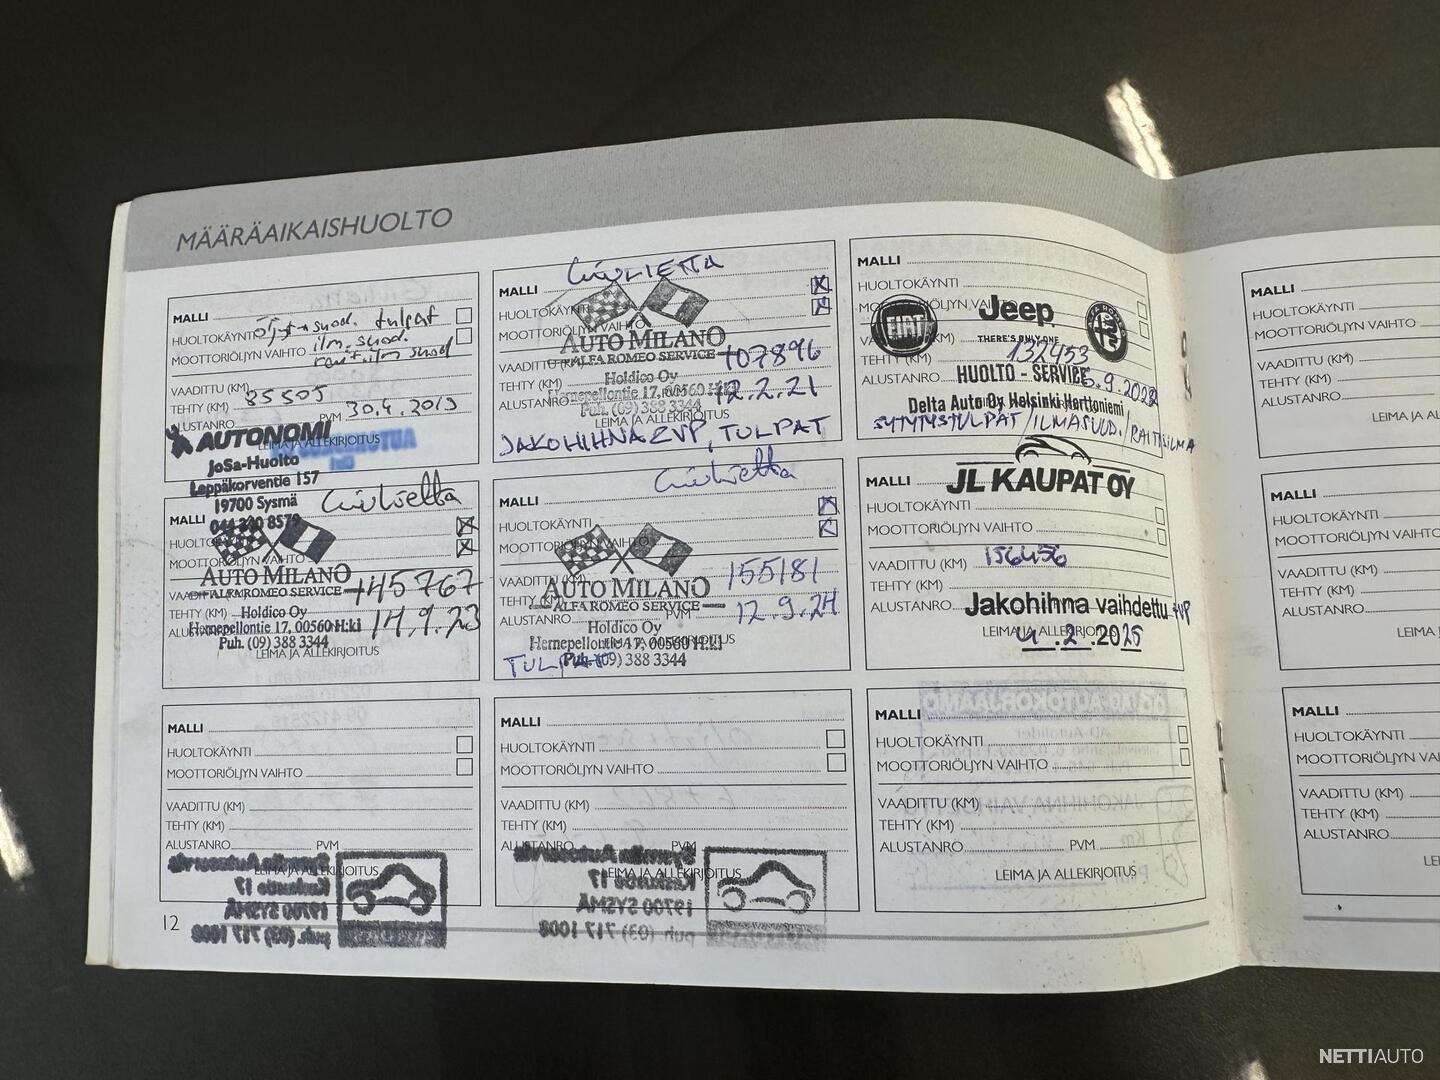 MÄÄRÄAIKAISHUOLTO
MALLI
HUOLTOKÄYNTI öljyt+suod. tulpat
MOOTTORIÖLJYN VAIHTO ilm.suod.
raitilm suod
VAADITTU (KM)
TEHTY (KM) 85505
ALUSTANRO PVM 30.4.2019
LEIMA JA ALLEKIRJOITUS
AUTONOMI
JoSa-Huolto
Leppäkorventie 157
19700 Sysmä
Giulietta
MALLI
HUOLTOKÄYNTI
MOOTTORIÖLJYN VAIHTO
AUTO MILANO
ALFA ROMEO SERVICE
VAADITTU (KM) 107896
TEHTY (KM) 12.2.21
Holdico Oy
Hernepellontie 17, 00560 H:ki
Puh. (09) 388 3344
ALUSTANRO
LEIMA JA ALLEKIRJOITUS
JAKOHIHNA+VP, TULPAT
MALLI
HUOLTOKÄYNTI
MOOTTORIÖLJYN VAIHTO
FIAT
Jeep
THERE'S ONLY ONE
TEHTY (KM) 132453
ALUSTANRO HUOLTO - SERVICE
Delta Auto Oy Helsinki Herttoniemi
SYTYTYSTULPAT/ILMASUOD./RAITISILMA
Giulietta
MALLI
HUOLTOKÄYNTI
MOOTTORIÖLJYN VAIHTO
AUTO MILANO
ALFA ROMEO SERVICE
145767
TEHTY (KM) 14.9.23
Holdico Oy
Hernepellontie 17, 00560 H:ki
Puh. (09) 388 3344
LEIMA JA ALLEKIRJOITUS
Giulietta
MALLI
HUOLTOKÄYNTI
MOOTTORIÖLJYN VAIHTO
AUTO MILANO
ALFA ROMEO SERVICE
VAADITTU (KM) 155181
TEHTY (KM) PVM 12.9.24
ALUSTANRO
Holdico Oy
Hernepellontie 17, 00560 H:ki
Puh. (09) 388 3344
TULPAT
JL KAUPAT OY
MALLI
HUOLTOKÄYNTI
MOOTTORIÖLJYN VAIHTO
VAADITTU (KM) 156456
TEHTY (KM)
ALUSTANRO Jakohihna vaihdettu +VP
LEIMA JA ALLEKIRJOITUS
4.2.2025
MALLI
HUOLTOKÄYNTI
MOOTTORIÖLJYN VAIHTO
VAADITTU (KM)
TEHTY (KM)
ALUSTANRO PVM
LEIMA JA ALLEKIRJOITUS
MALLI
HUOLTOKÄYNTI
MOOTTORIÖLJYN VAIHTO
VAADITTU (KM)
TEHTY (KM)
ALUSTANRO PVM
LEIMA JA ALLEKIRJOITUS
MALLI
HUOLTOKÄYNTI
MOOTTORIÖLJYN VAIHTO
VAADITTU (KM)
TEHTY (KM)
ALUSTANRO PVM
LEIMA JA ALLEKIRJOITUS
12
MALLI
HUOLTOKÄYNTI
MOOTTORIÖLJYN VAIHTO
VAADITTU (KM)
TEHTY (KM)
ALUSTANRO
LEIMA JA
MALLI
HUOLTOKÄYNTI
MOOTTORIÖLJYN VAIHTO
VAADITTU (KM)
TEHTY (KM)
ALUSTANRO
LEIMA
MALLI
HUOLTOKÄYNTI
MOOTTORIÖLJYN VAIHTO
VAADITTU (KM)
TEHTY (KM)
ALUSTANRO
NETTIAUTO